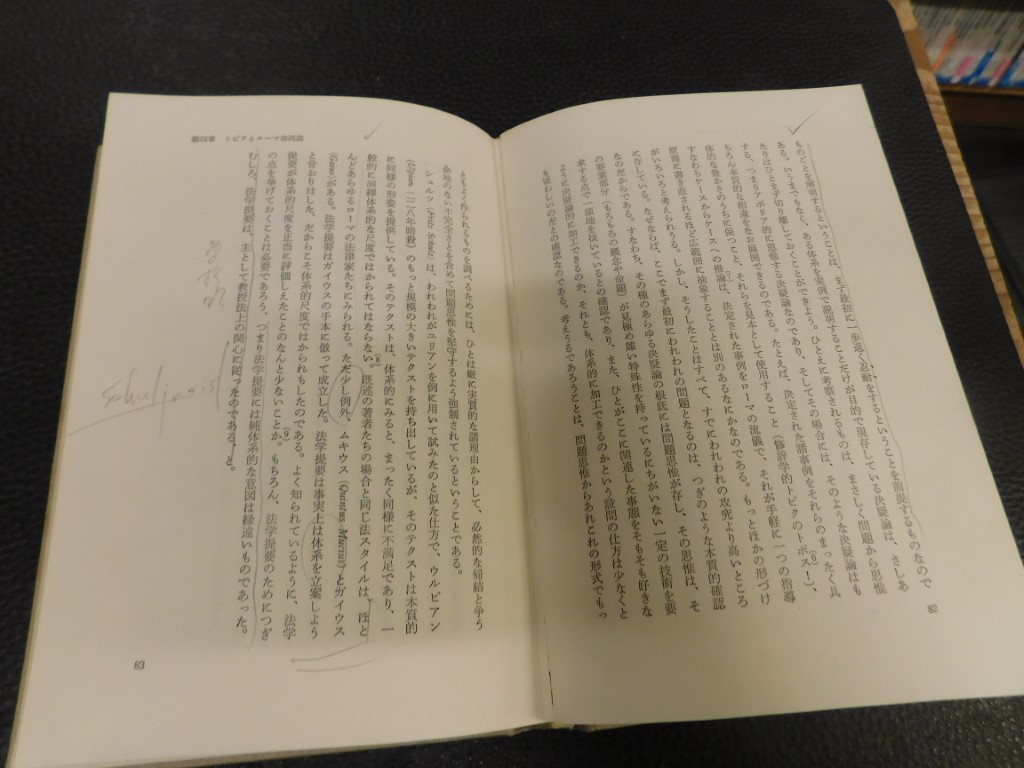 ものごとを解明するということは、まず最初に一歩退く忍耐をするということを前提するものなので
ある。いうまでもなく、ある体系を実例で説明することだけが目的で現存している決疑論は、さしあ
たりはひとまず切り離しておくことができよう。ひとまずに考察されるものは、まさしく問題から思惟
する、つまりアポリア的に思惟する決疑論なのであり、そしてその場合には、そのような決疑論はも
ちろん本質的な相違をなお展開できるのである。たとえば、決定された諸事例をそれらのまったく具
体的な豊かさのうちに保つこと、それらを見本として使用すること(修辞学的トピクのトポス!)、
すなわちケースからケースへの推論は、決定された事例をローマの流儀で、それが手軽に一つの指導
原理に書き直されるほど広範囲に抽象することとは別のあるなにかなのである。もっとほかの形づけ
がいろいろと考えられうる。しかし、そうしたことはすべて、すでにわれわれの攻究より高いところ
に存している。なぜならば、ここでまず最初にわれわれの問題となるのは、つぎのような本質的確認
なのだからである。すなわち、その種のあらゆる決疑論の根底には問題思惟が存し、その思惟は、そ
の要素部分(もろもろの概念や命題)が見極め難い特殊性を持っているにちがいない一定の技術を要
求する点で一頭地を抜いているとの確認であり、また、ひとがここに関連した事態をそもそも好きな
ように決疑論的に加工できるのか、それとも、体系的に加工できるのかという設問の仕方は少なくと
も疑わしいのだとの確認なのである。考えうるであろうことは、問題思惟からあれこれの形式でもっ
82
第四章 トピクとローマ市民法
ともよく作られるものを調べるためには、ひとは厳に実質的な諸理由からして、必然的な帰結と争う
余地のない不完全さとを含めて問題思惟を堅守するよう強制されているということである。
シュルツ(Fritz Schulz)は、われわれがユリアンを例に用いて試みたのと似た仕方で、ウルピアン
(Ulpian, 二二八年時殺)のもっと規模の大きいテクストを持ち出しているが、そのテクストは本質的
に同様の形姿を提供している。そのテクストは、体系的にみると、まったく同様に不満足であり、一
般的に演繹体系的な尺度ではかられてはならない。既述の著者たちの場合と同じ法スタイルは、ほと
んどあらゆるローマの法律家たちにみられる。ただ少し例外、ムキウス(Quintus Mucius)とガイウス
(Gaius)がある。法学提要はガイウスの手本に倣って成立した。法学提要は事実上は体系を立案しよう
と骨おりはした。だからこそ体系的尺度ではかられもしたのである。よく知られているように、法学
提要が体系的尺度を正当に評価しえたことのなんと少ないことか。もちろん、法学提要のためにつぎ
の点を挙げておくことは必要であろう、つまり法学提要には純体系的な意図は縁遠いものであった。
むしろ、法学提要は、主として教授法上の関心に従ったのである、と。
83